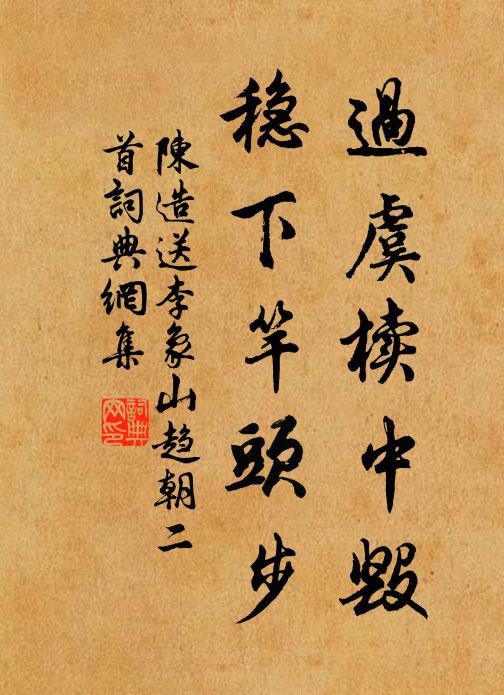 過虞櫝中毀
穩下竿頭步
陳造送李象山趨朝二
首詞典網集
詞典
網印